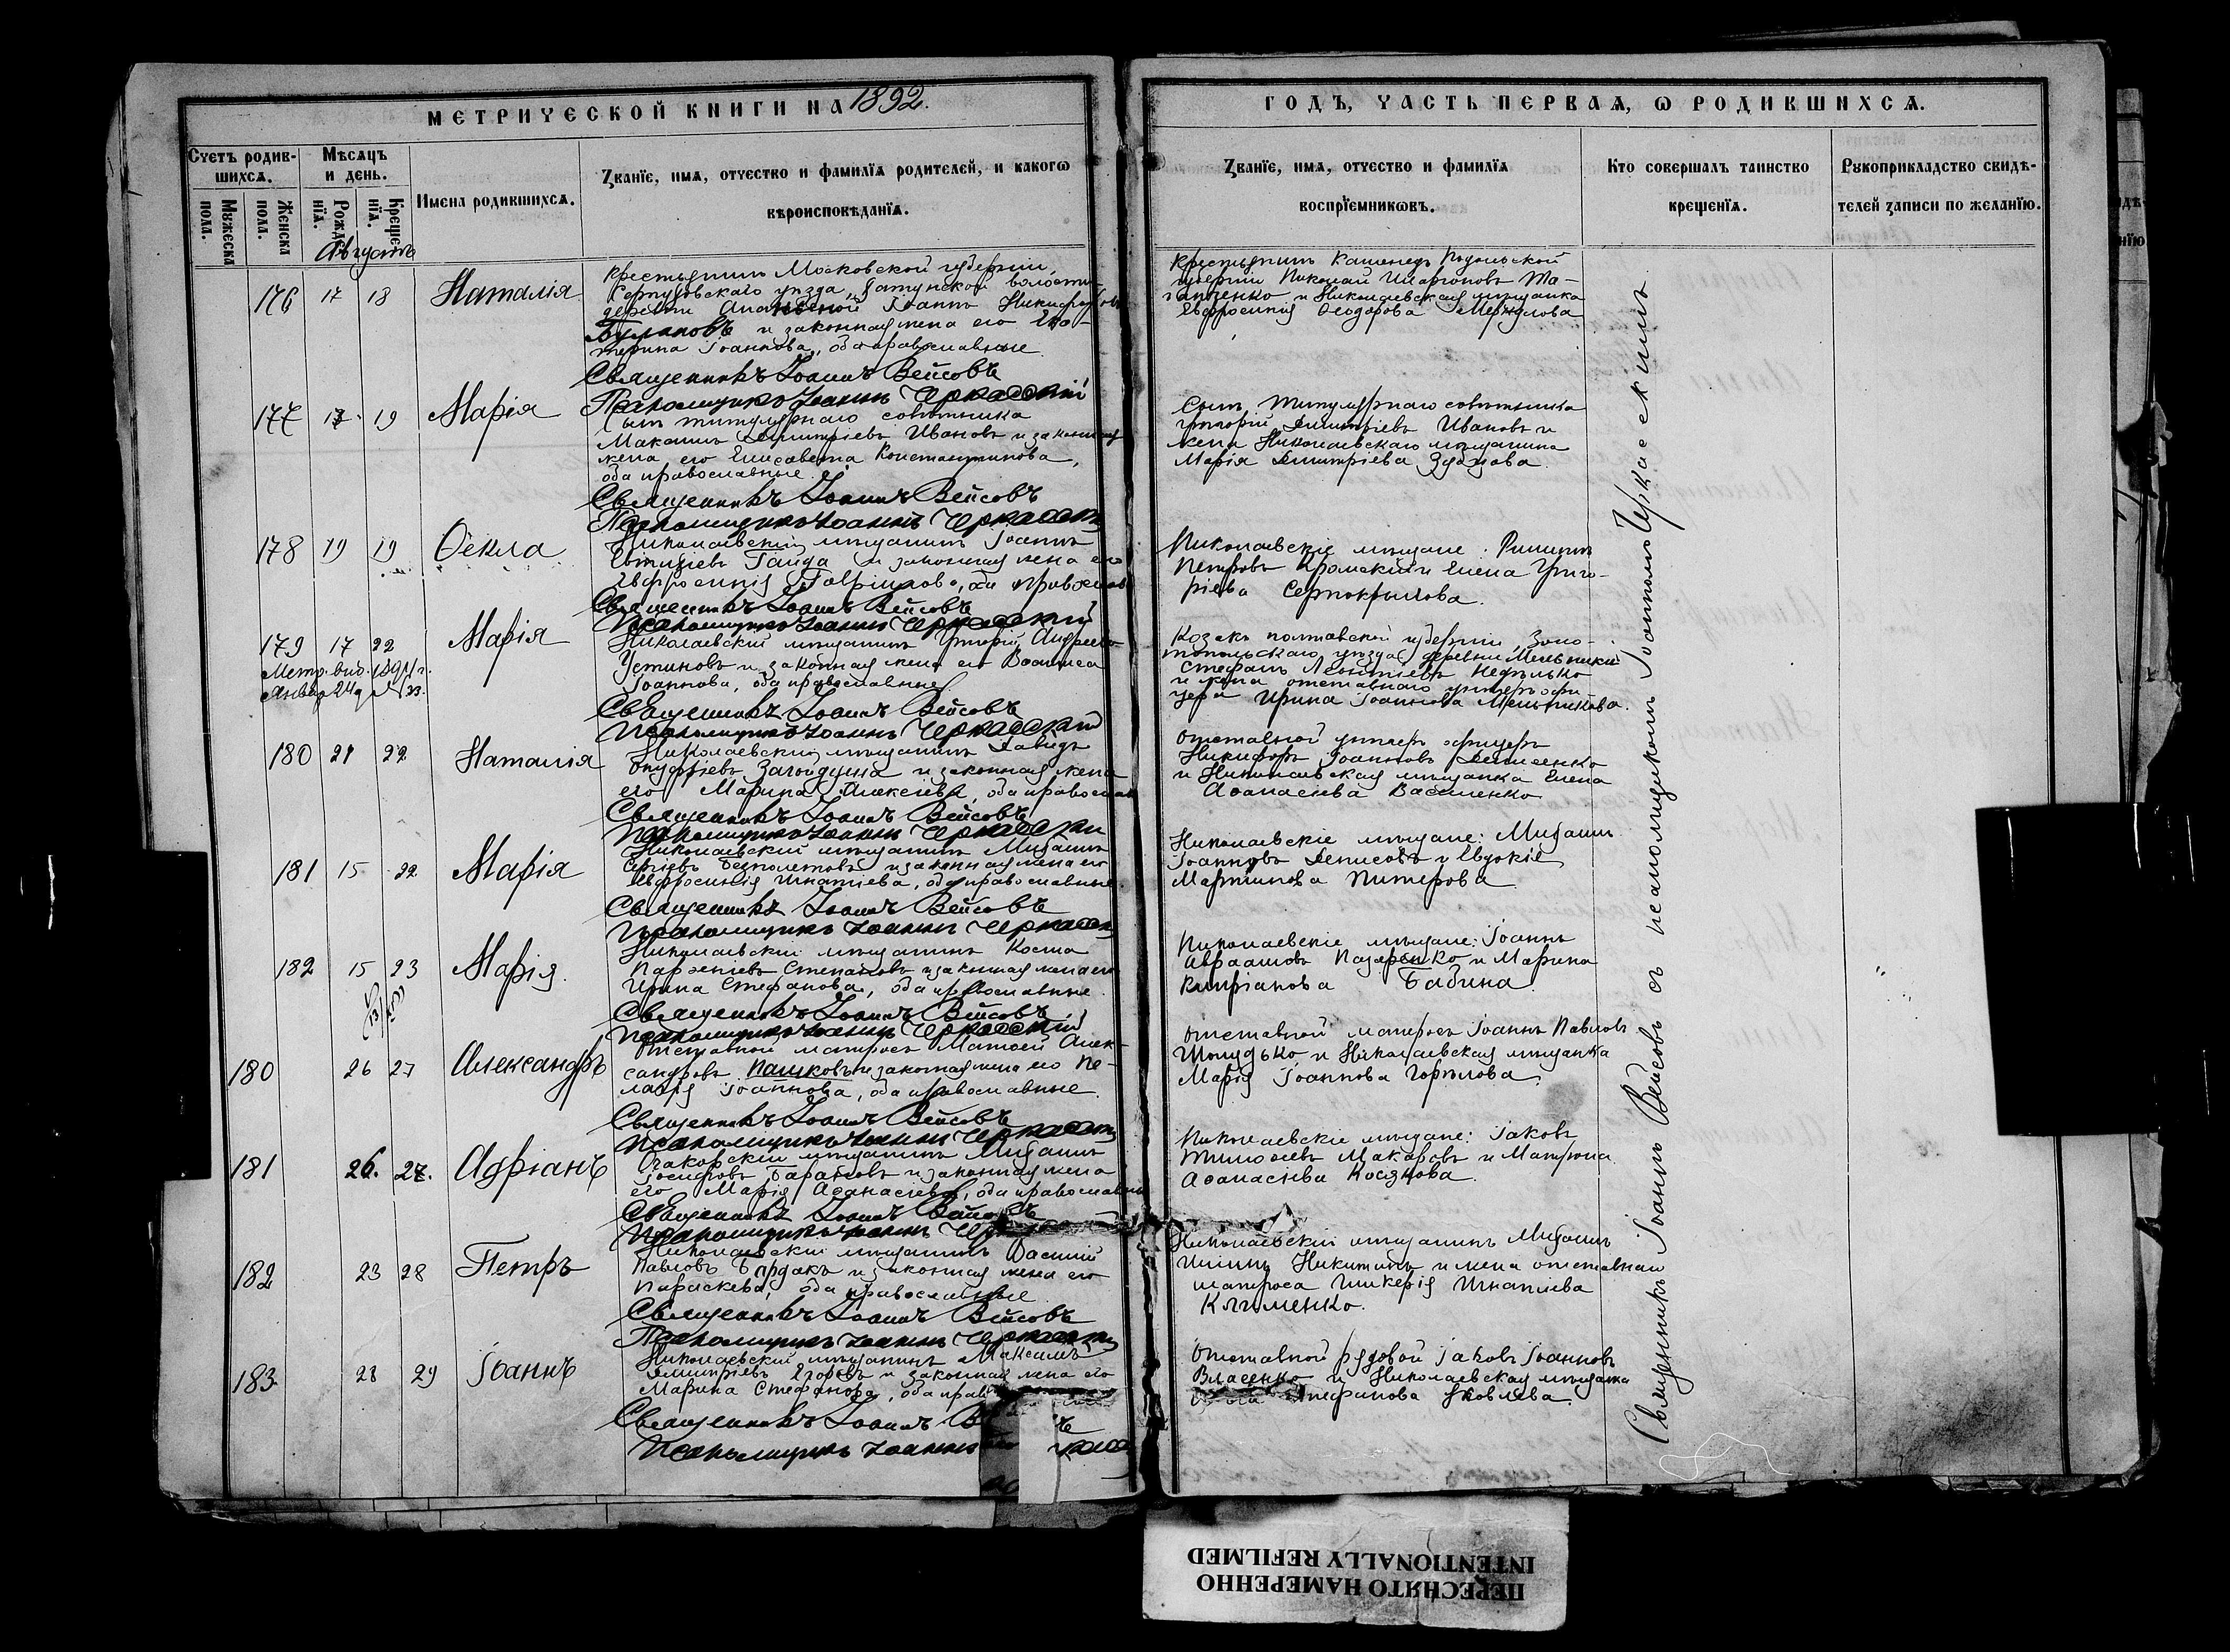 МЕТРИЧЕСКОЙ КНИГИ НА 1892.
Счетъ родив-
шихся.
Мужеска
пола.
Женска
пола.
Мѣсяцъ
и день.
Рожде-
нїя.
Креще-
нїя.
Имена родившихся.
Званїе, имя, отчество и фамилїя родителей, и какогѡ
вѣроисповѣданїя.
Августъ
176 17 18 Наталія
Крестьянинъ Московской губерніи,
Серпуховскаго уѣзда, Хатунской волости
деревни Іоаннъ Никифоровъ
и законная жена его Ека-
терина Іоаннова, оба православные.
Священникъ Іоаннъ Вейсовъ
Псаломщикъ Іоаннъ Черкасскій
177 13 19 Марія
Сынъ титулярнаго совѣтника
Дмитріевъ Ивановъ и законная
жена его Елисавета Константинова,
оба православные.
Священникъ Іоаннъ Вейсовъ
Псаломщикъ Іоаннъ Черкасскій
178 19 19 Ѳекла
Николаевскій мѣщанинъ Іоаннъ
Евтихіевъ Гайда и законная жена его
Евфросинія Гавріилова, оба православ
Священникъ Іоаннъ Вейсовъ
Псаломщикъ Іоаннъ Черкасскій
179 17 22 Марія
Метр. выд. 1894 г.
Январ 24 д. № 33.
Николаевскій мѣщанинъ Григорій Андреевъ
Устиновъ и законная жена его Василиса
Іоаннова, оба православные.
Священникъ Іоаннъ Вейсовъ
Псаломщикъ Іоаннъ Черкасскій
180 21 22 Наталія
Николаевскій мѣщанинъ Давидъ
Онуфріевъ и законная жена
его Марина Алексіева, оба православ
Священникъ Іоаннъ Вейсовъ
Псаломщикъ Іоаннъ Черкасскій
181 15 22 Марія
Николаевскій мѣщанинъ Михаилъ
Сергіевъ и законная жена его
Евфросинія Игнатіева, оба православные
Священникъ Іоаннъ Вейсовъ
Псаломщикъ Іоаннъ Черкасскій
182 15 23 Марія
Николаевскій мѣщанинъ Косма
Парѳеніевъ Степановъ и законная жена его
Ирина Стефанова, оба православные.
Священникъ Іоаннъ Вейсовъ
Псаломщикъ Іоаннъ Черкасскій
180 26 27 Александръ
Отставной матросъ Матѳей Алек-
сандровъ Пашковъ и законная жена его Пе-
лагія Іоаннова, оба православные.
Священникъ Іоаннъ Вейсовъ
Псаломщикъ Іоаннъ Черкасскій
181 26. 27. Адріанъ
Очаковскій мѣщанинъ Михаилъ
Іосифовъ Барановъ и законная жена
его Марія Аѳанасіева, оба православн
Священникъ Іоаннъ Вейсовъ
Псаломщикъ Іоаннъ
182 23 28 Петръ
Николаевскій мѣщанинъ Василій
Павловъ и законная жена его
Параскева, оба православные
Священникъ Іоаннъ Вейсовъ
Псаломщикъ Іоаннъ Черкасскій
183 28 29 Іоаннъ
Николаевскій мѣщанинъ Максимъ
Димитріевъ Егоровъ и законная жена его
Марина Стефанова, оба прав
Священникъ Іоаннъ
Псаломщикъ Іоаннъ
ГОДЪ, ЧАСТЬ ПЕРВАЯ, Ѡ РОДИВШИХСЯ.
Званїе, имя, отчество и фамилїя
воспрїемникѡвъ.
Кто совершалъ таинство
крещенїя.
Рукоприкладство свидѣ-
телей записи по желанїю.
Крестьянинъ Каменецъ Подольской
губерніи Николай Иларіоновъ
и Николаевская мѣщанка
Евфросинія Ѳеодорова Меркулова
Сынъ титулярнаго совѣтника
Григорій Димитріевъ Ивановъ и
жена Николаевскаго мѣщанина
Марія Димитріева
Николаевскіе мѣщане: Филиппъ
Петровъ и Елена Григо-
ріева Серпокрылова.
Козакъ полтавской губерніи, Золо-
тоношскаго уѣзда, деревни Мельники
Стефанъ Леонтіевъ
и жена отставного унтеръ-офи-
цера Ирина Іоаннова Мельникова.
Отставной унтеръ офицеръ
Никифоръ Іоанновъ Денисенко
и Николаевская мѣщанка Елена
Аѳанасіева Василенко
Николаевскіе мѣщане: Михаилъ
Іоанновъ Денисовъ и Евдокія
Мартинова Питерова
Николаевскіе мѣщане: Іоаннъ
Авраамовъ Назаренко и Марина
Кипріанова Бабина
Отставной матросъ Іоаннъ Павловъ
Шолудько и Николаевская мѣщанка
Марія Іоаннова Горѣлова.
Николаевскіе мѣщане: Іаковъ
Тимоѳеевъ Макаровъ и Матрона
Аѳанасіева
Николаевскій мѣщанинъ Михаилъ
Никитинъ и жена отставнаго
матроса Гликерія Игнатіева
Клименко.
Отставной рядовой Іаковъ Іоанновъ
Власенко и Николаевская мѣщанка
Стефанова Яковлева.
Священникъ Іоаннъ Вейсовъ съ псаломщикомъ Іоанномъ Черкасскимъ
ПЕРЕСНЯТО НАМЕРЕННО
INTENTIONALLY REFILMED